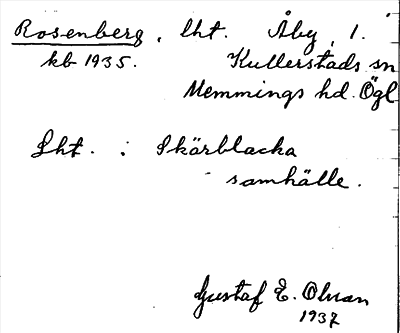 Rosenberg, lht. Åby, 1.
kb 1935. Kullerstads sn
Memmings hd. Ögl
Lht. : Skärblacka
samhälle.
Gustaf E. Olman
1937